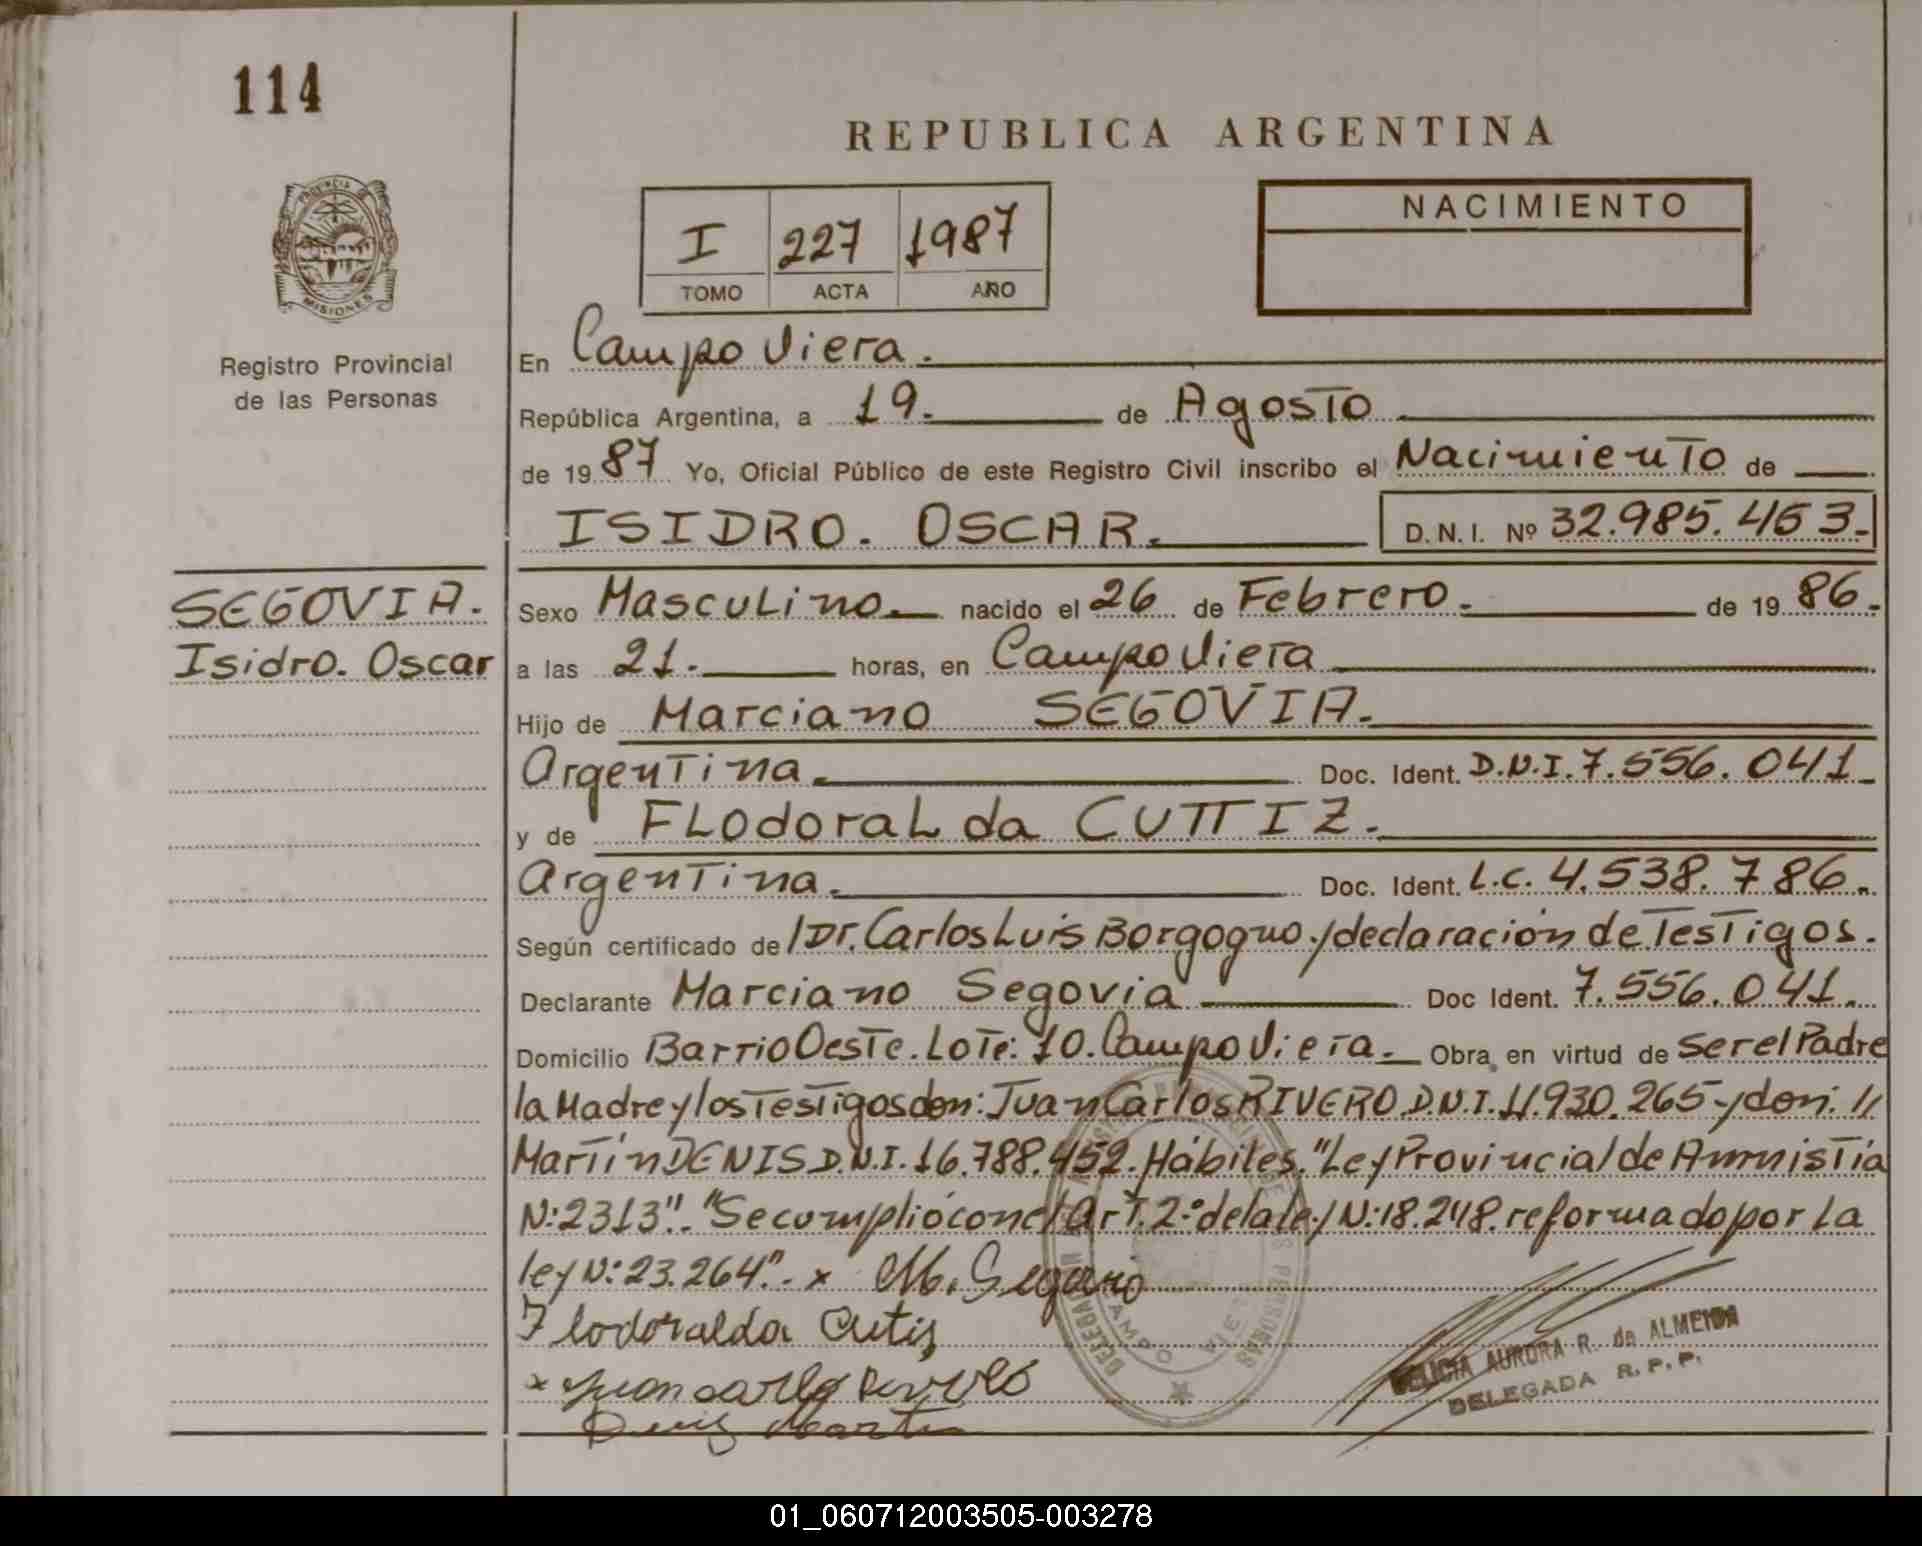 114
REPUBLICA ARGENTINA
PROVINCIA DE
MISIONES
Registro Provincial
de las Personas
I 227 1987
TOMO ACTA AÑO
NACIMIENTO
En Campo Viera.
República Argentina, a 19. de Agosto
de 19 87 Yo, Oficial Público de este Registro Civil inscribo el Nacimiento de
ISIDRO. OSCAR. D.N.I. Nº 32.985.453.-
SEGOVIA.
Isidro. Oscar
Sexo Masculino. nacido el 26 de Febrero. de 19 86.
a las 21. horas, en Campo Viera
Hijo de Marciano SEGOVIA.
Argentina. Doc. Ident. D.N.I. 7.556.041
y de FLodoraLda CUTTIZ.
Argentina. Doc. Ident. L.C. 4.538.786.
Según certificado de /Dr. Carlos Luis Borgogno.y declaración de Testigos.
Declarante Marciano Segovia Doc Ident. 7.556.041.
Domicilio Barrio Oeste. Lote: 10. Campo Viera. Obra en virtud de ser el Padre
la Madre y los Testigos don: Juan Carlos RIVERO D.N.I. 11.930.265-y don: //
Martín DENIS D.N.I. 16.788.452. Hábiles. "Ley Provincial de Amnistía
N:2313". "Se cumplió con el Art. 2:º de la ley N:18.248. reformado por La
ley N:23.264". x M. Segovio
Flodoralda Cutis
x Juan carlo Rivero
Denis Martin
DELICIA AURORA R. de ALMEIDA
DELEGADA R.P.P.
01_060712003505-003278